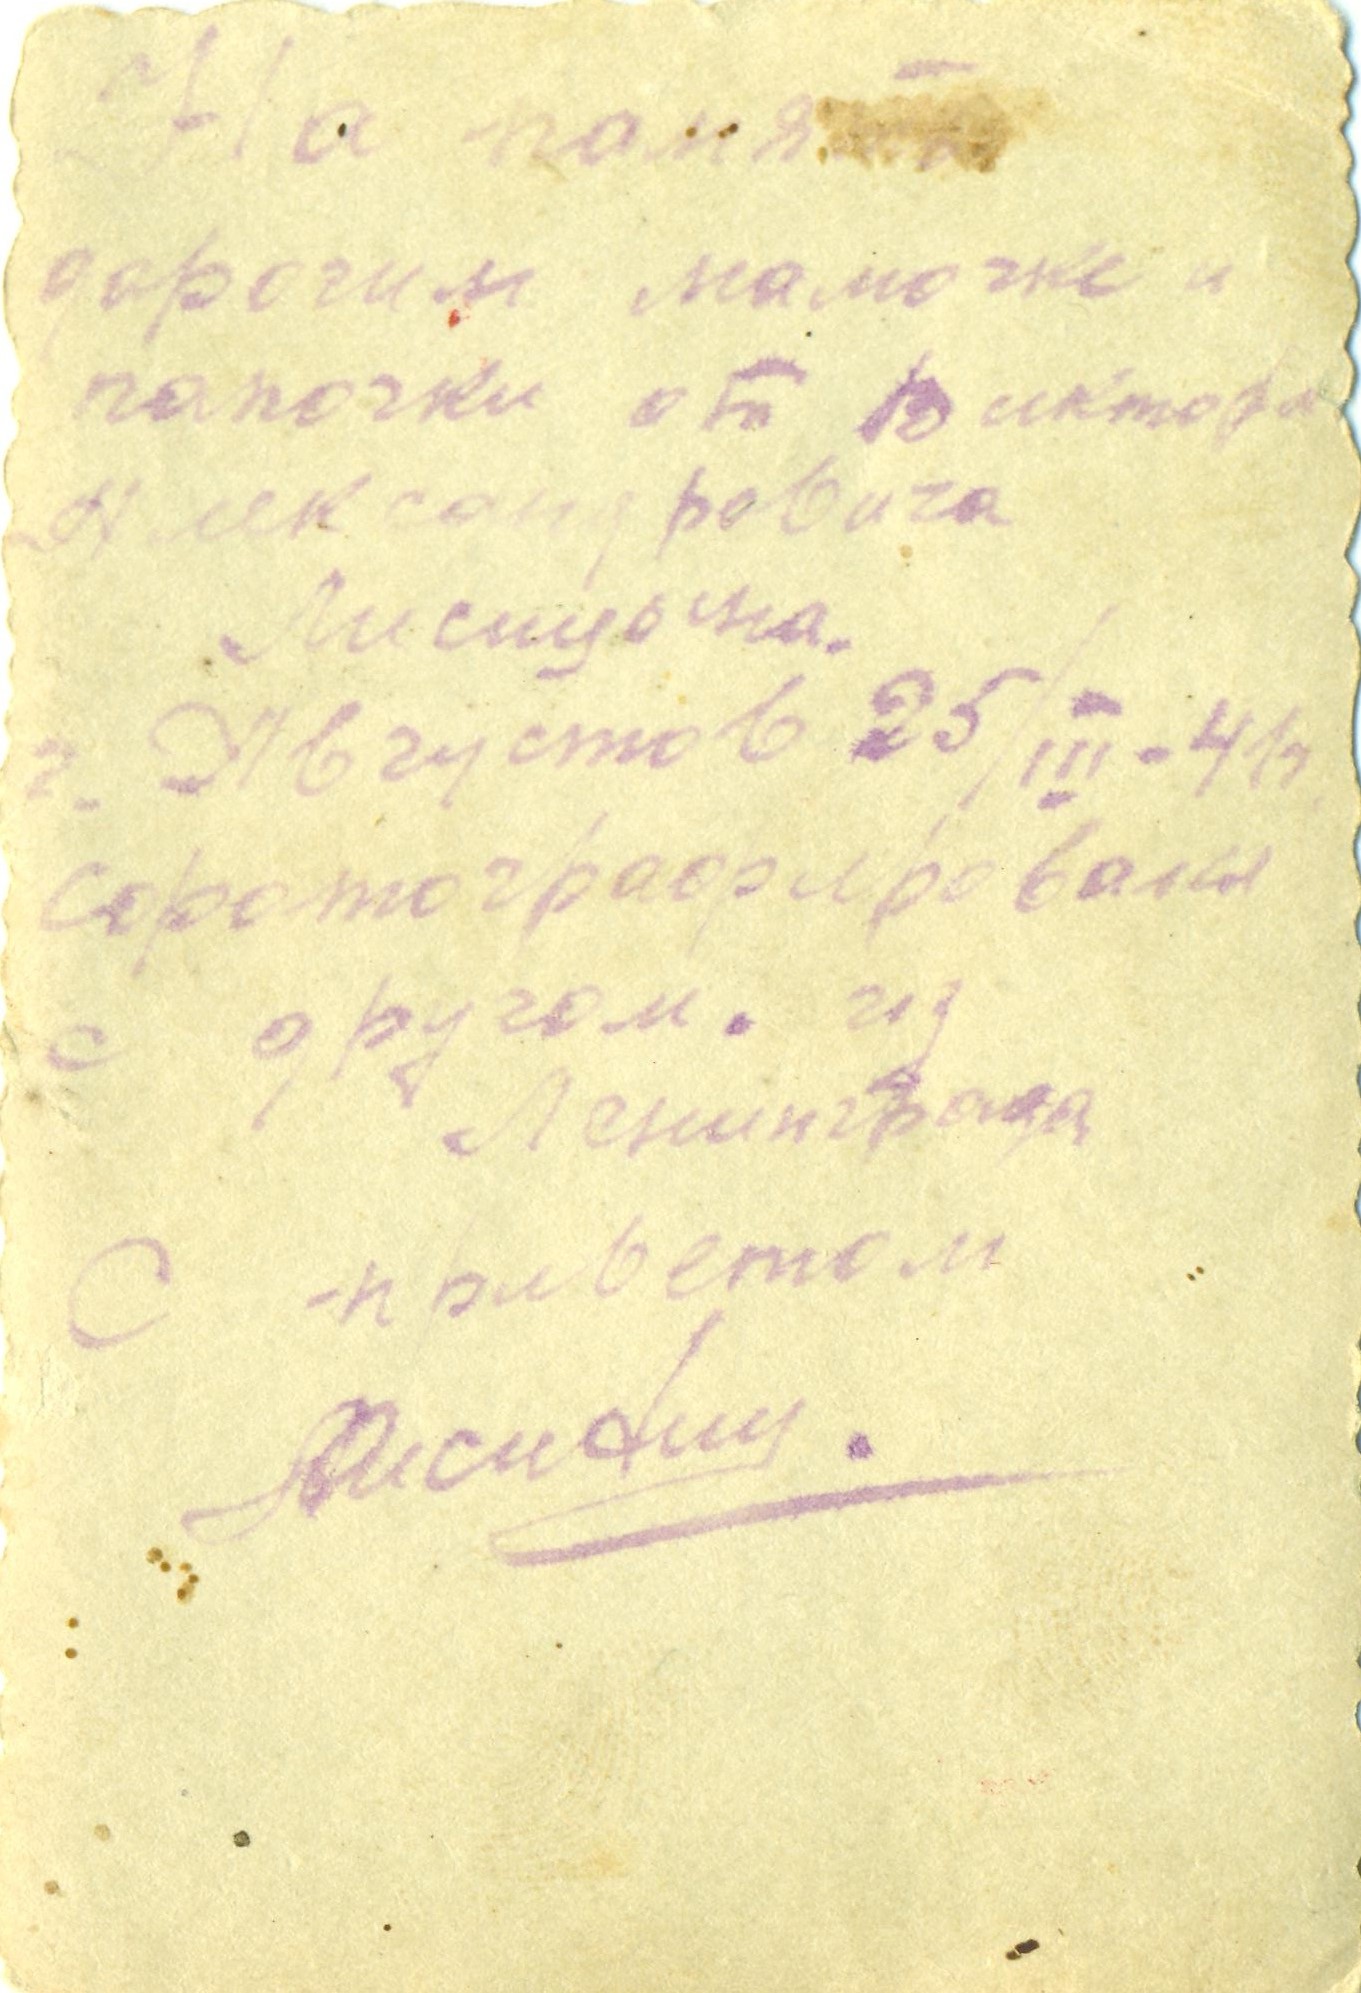 На память
дорогим мамочке и
папочки от Виктора
Александровича
Лисицына.
г. Августов 25/III-41г.
сфотографировались
с другом. из
Ленинграда
С приветом